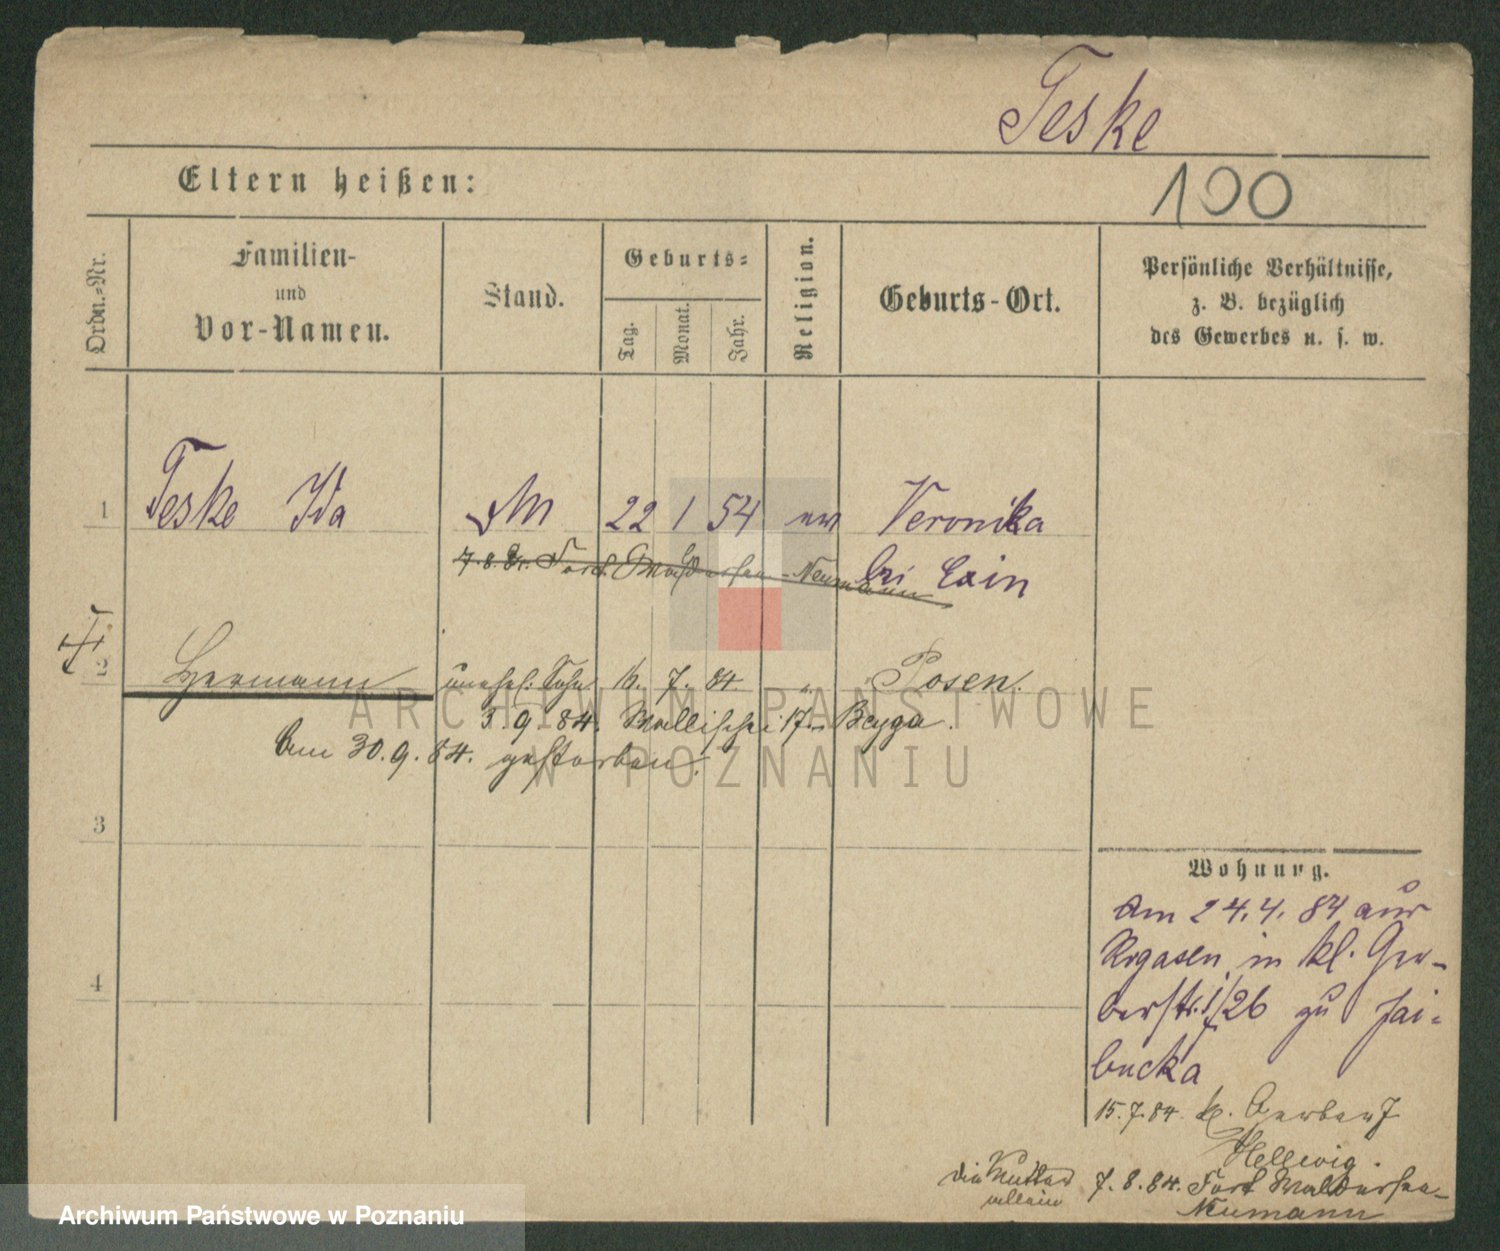 Teske
Eltern heißen:
100
Ordn.-Nr.
Familien-
und
Vor-Namen.
Stand.
Geburts-
Tag.
Monat.
Jahr.
Religion.
Geburts-Ort.
Persönliche Verhältnisse,
z. B. bezüglich
des Gewerbes u. s. w.
1 Teske Ida M 22 1 54 ev Veronika
bei Exin
7. 8. 84. Fort Waldersee - Neumann
2 Hermann unehel. Sohn 16. 7. 84. " Posen.
3. 9. 84. Wallischei 17. Beyga.
Am 30. 9. 84. gestorben.
3
4
Wohnung.
Am 24. 4. 84 aus
Rogasen in kl. Ger-
berstr. 26 zu Jai-
bucka
15. 7. 84. kl. Gerber 7
Hellwig.
7. 8. 84. Fort Waldersee-
Neumann
die Mutter
allein
ARCHIWUM PAŃSTWOWE
W POZNANIU
Archiwum Państwowe w Poznaniu